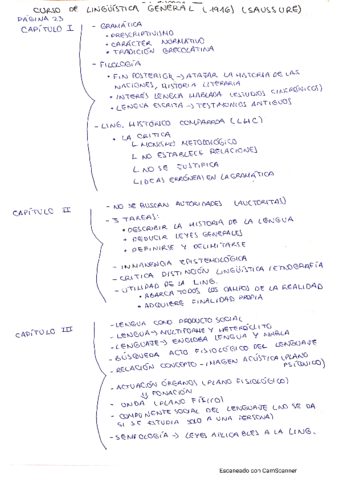 CURSO DE LINGÜÍSTICA GENERAL (1916) (SAUSSURE)
PÁGINA 23
CAPÍTULO I
- GRAMÁTICA
• PRESCRIPTIVISMO
• CARÁCTER NORMATIVO
• TRADICIÓN GRECOLATINA
- FILOLOGÍA
• FIN POSTERIOR → ATAÑAR LA HISTORIA DE LAS
NACIONES, HISTORIA LITERARIA
• INTERÉS LENGUA HABLADA (ESTUDIOS SINCRÓNICOS)
• LENGUA ESCRITA → TESTIMONIOS ANTIGUOS
- LING. HISTÓRICO COMPARADA (LHC)
• LA CRITICA
L MONISMO METODOLÓGICO
L NO ESTABLECE RELACIONES
L NO SE JUSTIFICA
L IDEAS ERRÓNEAS EN LA GRAMÁTICA
CAPÍTULO II
- NO SE BUSCAN AUTORIDADES (AUCTORITAS)
- 3 TAREAS:
• DESCRIBIR LA HISTORIA DE LA LENGUA
• DEDUCIR LEYES GENERALES
• DEFINIRSE Y DELIMITARSE
- INMANENCIA EPISTEMOLÓGICA
- CRITICA DISTINCIÓN LINGÜÍSTICA / ETNOGRAFÍA
- UTILIDAD DE LA LING.
• ABARCA TODOS LOS CAMPOS DE LA REALIDAD
• ADQUIERE FINALIDAD PROPIA
CAPÍTULO III
- LENGUA COMO PRODUCTO SOCIAL
- LENGUAJE → MULTIFORME Y HETERÓCLITO
- LENGUAJE → ENGLOBA LENGUA Y HABLA
- BÚSQUEDA ACTO FISIOLÓGICO DEL LENGUAJE
- RELACIÓN CONCEPTO - IMAGEN ACÚSTICA (PLANO
PSÍQUICO)
- ACTUACIÓN ÓRGANOS (PLANO FISIOLÓGICO)
FONACIÓN
- ONDA (PLANO FÍSICO)
- COMPONENTE SOCIAL DEL LENGUAJE (NO SE DA
SI SE ESTUDIA SOLO A UNA PERSONA)
- SEMIOLOGÍA → LEYES APLICABLES A LA LING.
Escaneado con CamScanner